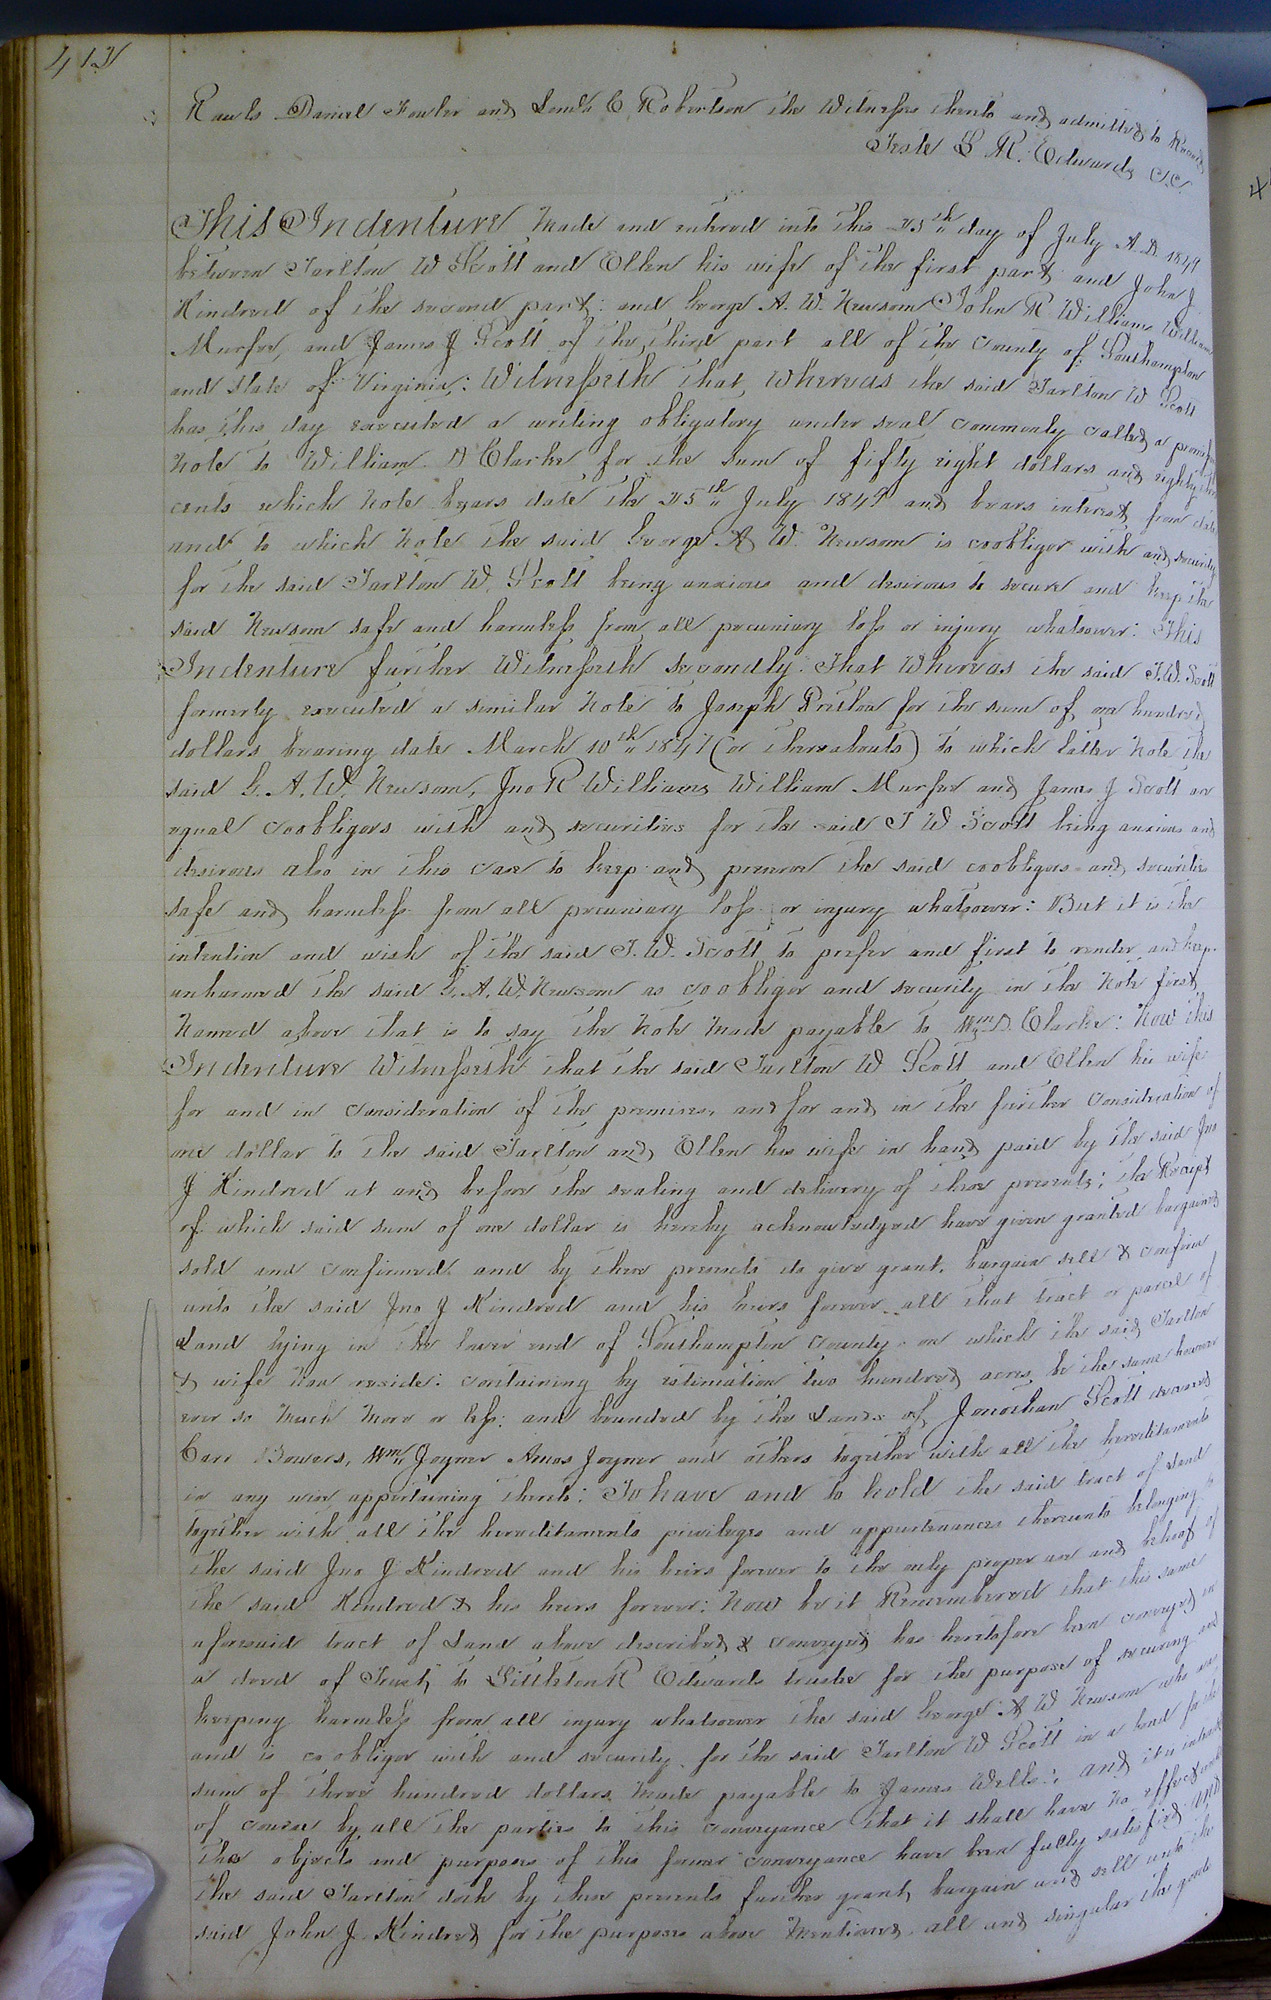 412
Rawls Daniel Fowler and Lem'l C. Robertson the Witnesses thereto and admitted to Record
Teste L R. Edwards CC.
This Indenture Made and entered into this 25th day of July A.D. 1849
between Tarlton W Scott and Ellen his wife of the first part and John J
Kindred of the second part: and George A. W. Newsom John R Williams William
Murfee, and James J Scott of the third part all of the County of Southampton
and State of Virginia: Witnesseth that, Whereas the said Tarlton W Scott
has this day executed a writing obligatory under seal commonly called a
Note to William D Clarke for the sum of fifty eight dollars and eighty
cents which Note bears date the 25th July 1849 and bears interest from date
and to which Note the said George A W. Newsom is coobligor with and security
for the said Tarlton W. Scott being anxious and desirous to secure and keep the
said Newsom safe and harmless from all pecuniary loss or injury whatsoever: This
Indenture further Witnesseth secondly: That Whereas the said T.W. Scott
formerly executed a similar Note to Joseph Pretlow for the sum of one hundred
dollars bearing date March 10th 1847 (or thereabouts) to which latter Note the
said G. A. W. Newsom, Jno R Williams William Murfee and James J Scott are
equal coobligors with and securities for the said T W Scott being anxious and
desirous also in this case to keep and preserve the said coobligors and securities
safe and harmless from all pecuniary loss or injury whatsoever: But it is the
intention and wish of the said T. W. Scott to prefer and first to render and keep
unharmed the said G. A. W. Newsom as coobligor and security in the Note first
Named above that is to say the Note Made payable to Wm D. Clarke: Now this
Indenture Witnesseth that the said Tarlton W Scott and Ellen his wife
for and in consideration of the premises, and for and in the further consideration of
one dollar to the said Tarlton and Ellen his wife in hand paid by the said Jno
J Kindred at and before the sealing and delivery of these presents; the Receipt
of which said sum of one dollar is hereby acknowledged have given granted bargained
sold and confirmed and by these presents do give grant, bargain sell & confirm
unto the said Jno J Kindred and his heirs forever all that tract or parcel of
Land lying in the lower end of Southampton County on which the said Tarlton
& wife Now reside: containing by estimation two hundred acres be the same however
ever so Much More or less: and bounded by the Lands of Jonathan Scott deceased
Carr Bowers, Wm Joyner Amos Joyner and others together with all the hereditaments
in any wise appertaining thereto: To have and to hold the said tract of Land
together with all the hereditaments privileges and appurtenances thereunto belonging to
the said Jno J Kindred and his heirs forever to the only proper use and behoof of
the said Kindred & his heirs forever: Now be it Remembered that this same
aforesaid tract of Land above described & conveyed has heretofore been conveyed in
a deed of Trust, to Littleton R Edwards trustee for the purpose of securing and
keeping harmless from all injury whatsoever the said George A W Newsom who was
and is coobligor with and security for the said Tarlton W Scott in a bond for the
sum of three hundred dollars Made payable to James Wells: and it is intended
of course by all the parties to this conveyance that it shall have No effect until
the objects and purposes of this former conveyance have been fully satisfied: And
the said Tarlton doth by these presents further grant, bargain and sell unto the
said John J. Kindred for the purposes above Mentioned all and singular the goods